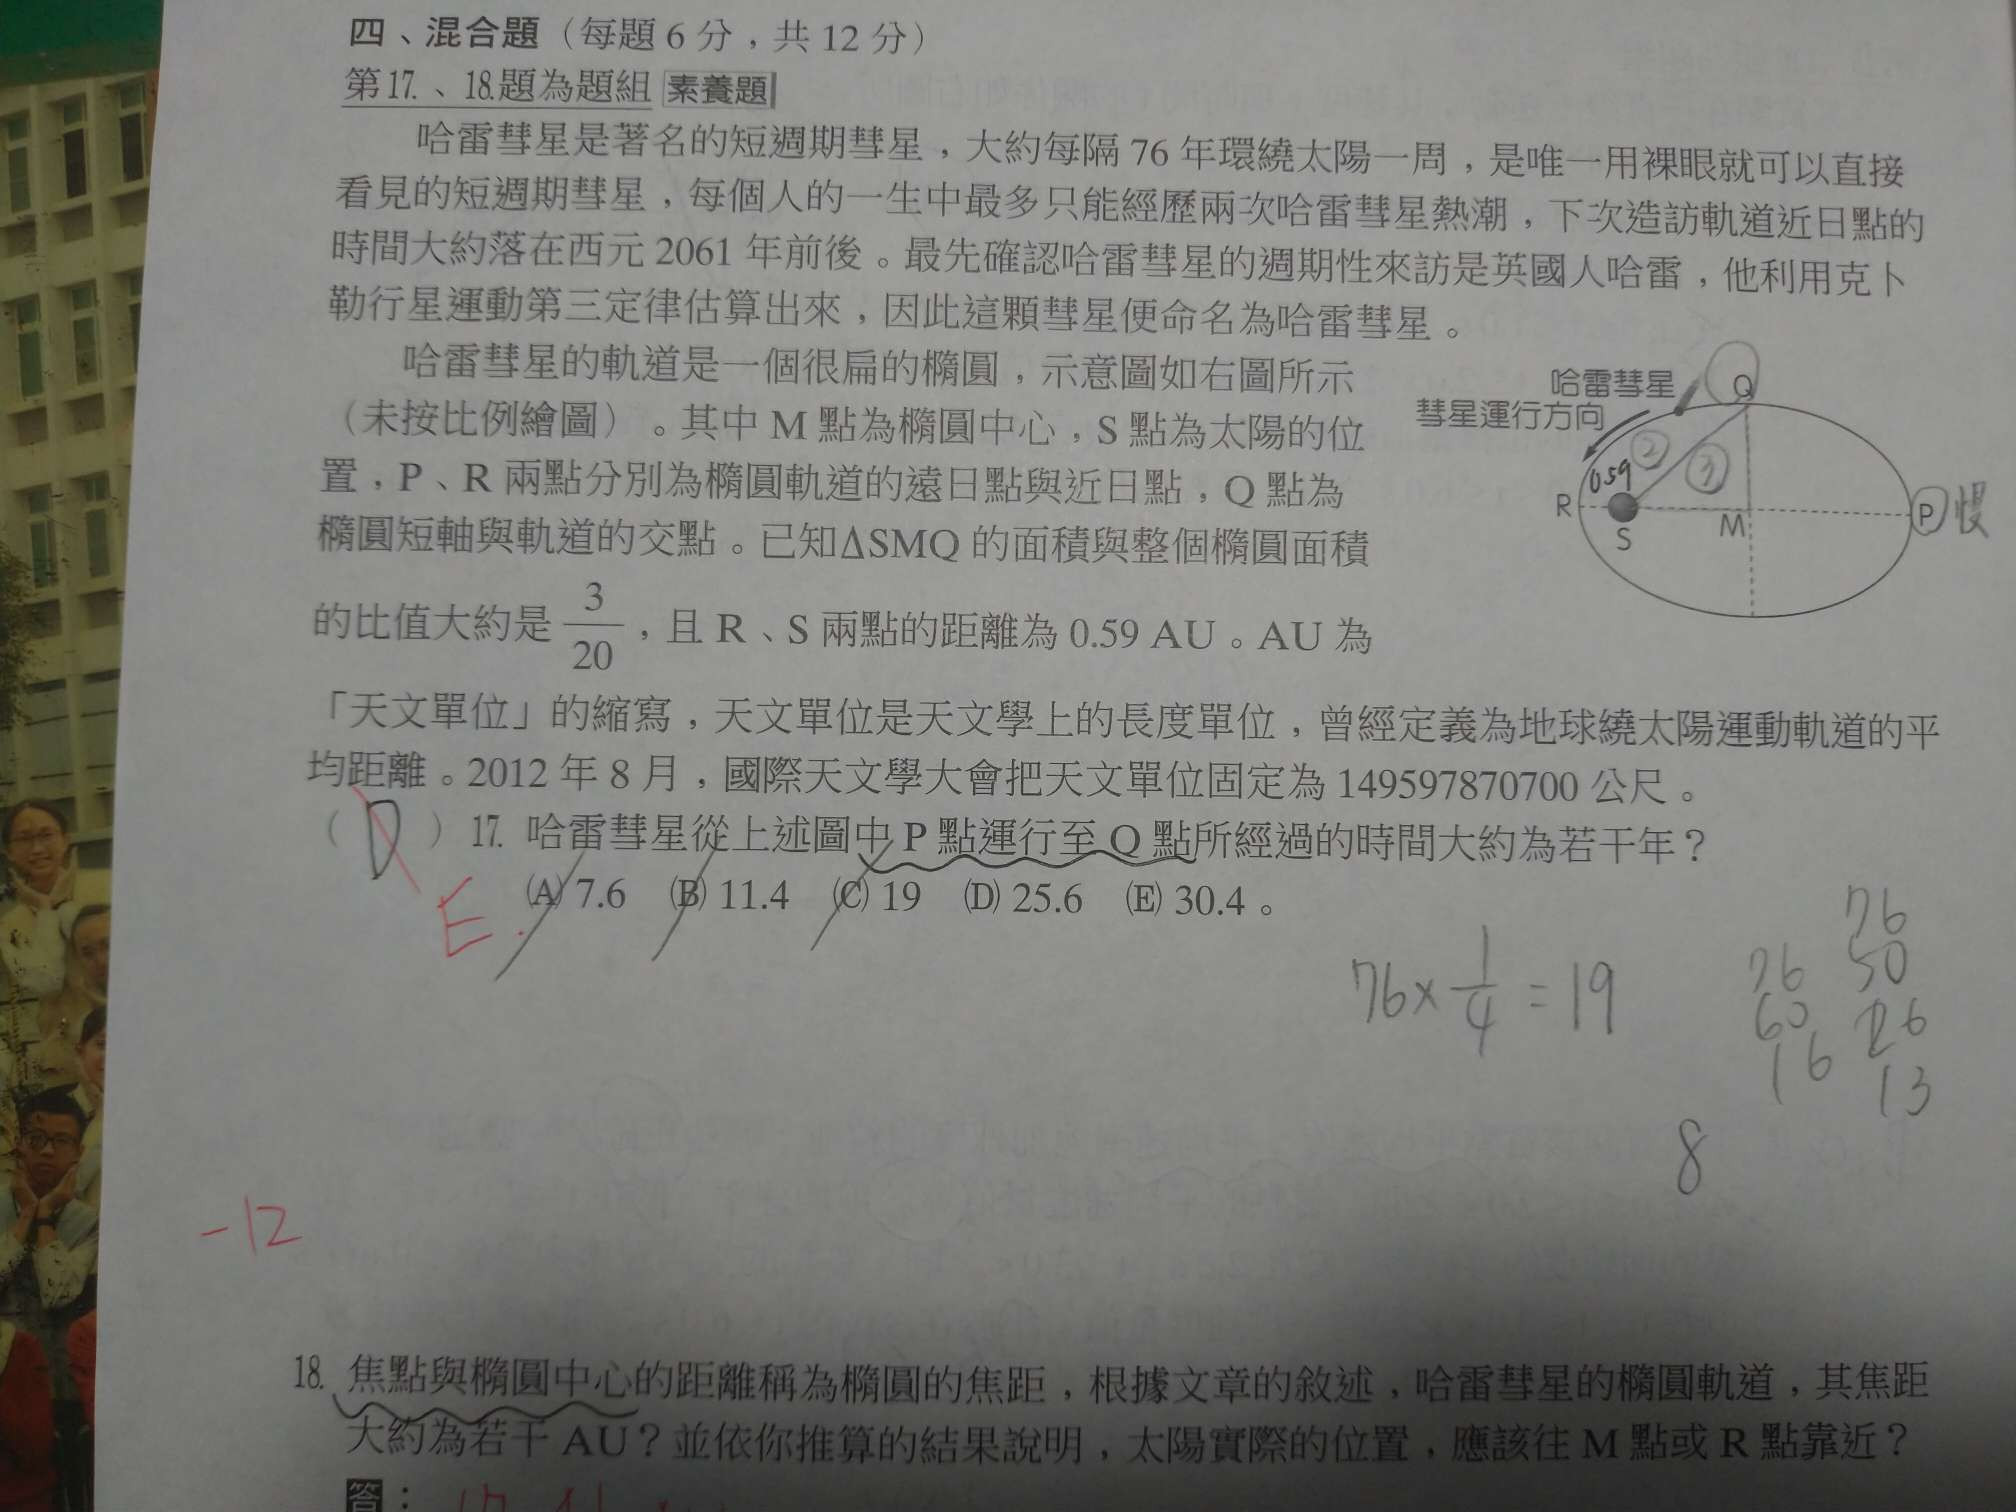 四、混合題（每題 6 分，共 12 分）
第17.、18.題為題組 素養題
哈雷彗星是著名的短週期彗星，大約每隔 76 年環繞太陽一周，是唯一用裸眼就可以直接
看見的短週期彗星，每個人的一生中最多只能經歷兩次哈雷彗星熱潮，下次造訪軌道近日點的
時間大約落在西元 2061 年前後。最先確認哈雷彗星的週期性來訪是英國人哈雷，他利用克卜
勒行星運動第三定律估算出來，因此這顆彗星便命名為哈雷彗星。
哈雷彗星的軌道是一個很扁的橢圓，示意圖如右圖所示
（未按比例繪圖）。其中 M 點為橢圓中心，S 點為太陽的位
置，P、R 兩點分別為橢圓軌道的遠日點與近日點，Q 點為
橢圓短軸與軌道的交點。已知ΔSMQ 的面積與整個橢圓面積
的比值大約是 3/20，且 R、S 兩點的距離為 0.59 AU。AU 為
哈雷彗星
Q
彗星運行方向
②
③
0.59
R
S
M
P
慢
「天文單位」的縮寫，天文單位是天文學上的長度單位，曾經定義為地球繞太陽運動軌道的平
均距離。2012 年 8 月，國際天文學大會把天文單位固定為 149597870700 公尺。
（ D ）17. 哈雷彗星從上述圖中 P 點運行至 Q 點所經過的時間大約為若干年？
E.
(A) 7.6 (B) 11.4 (C) 19 (D) 25.6 (E) 30.4 。
76 × 1/4 = 19
76
60
16
76
50
26
13
8
-12
18. 焦點與橢圓中心的距離稱為橢圓的焦距，根據文章的敘述，哈雷彗星的橢圓軌道，其焦距
大約為若干 AU？並依你推算的結果說明，太陽實際的位置，應該往 M 點或 R 點靠近？
答：